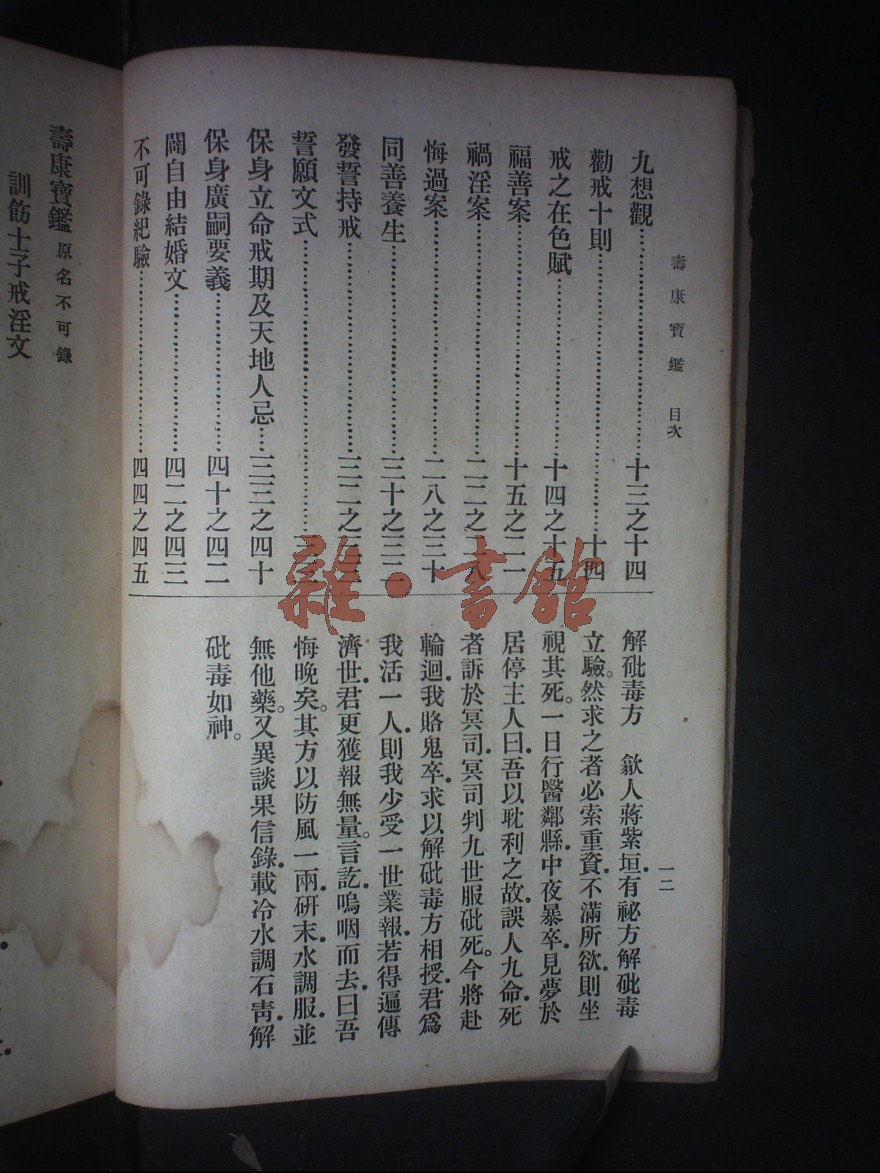 壽康寶鑑 目次
一二
九想觀……十三之十四
勸戒十則……十四
戒之在色賦……十四之十五
福善案……十五之二一
禍淫案……二二之二八
悔過案……二八之三十
同善養生……三十之三二
發誓持戒……三二之三三
誓願文式……三三
保身立命戒期及天地人忌…三三之四十
保身廣嗣要義……四十之四二
闢自由結婚文……四二之四三
不可錄紀驗……四四之四五
解砒毒方 歙人蔣紫垣.有祕方解砒毒
立驗。然求之者必索重資.不滿所欲.則坐
視其死。一日行醫鄰縣.中夜暴卒.見夢於
居停主人曰.吾以耽利之故.誤人九命.死
者訴於冥司.冥司判九世服砒死。今將赴
輪迴.我賂鬼卒.求以解砒毒方相授.君爲
我活一人.則我少受一世業報.若得遍傳
濟世.君更獲報無量。言訖.嗚咽而去.曰吾
悔晚矣。其方以防風一兩.研末.水調服.並
無他藥。又異談果信錄.載冷水調石靑.解
砒毒如神。
壽康寶鑑 原名不可錄
訓飭士子戒淫文
雜·書館